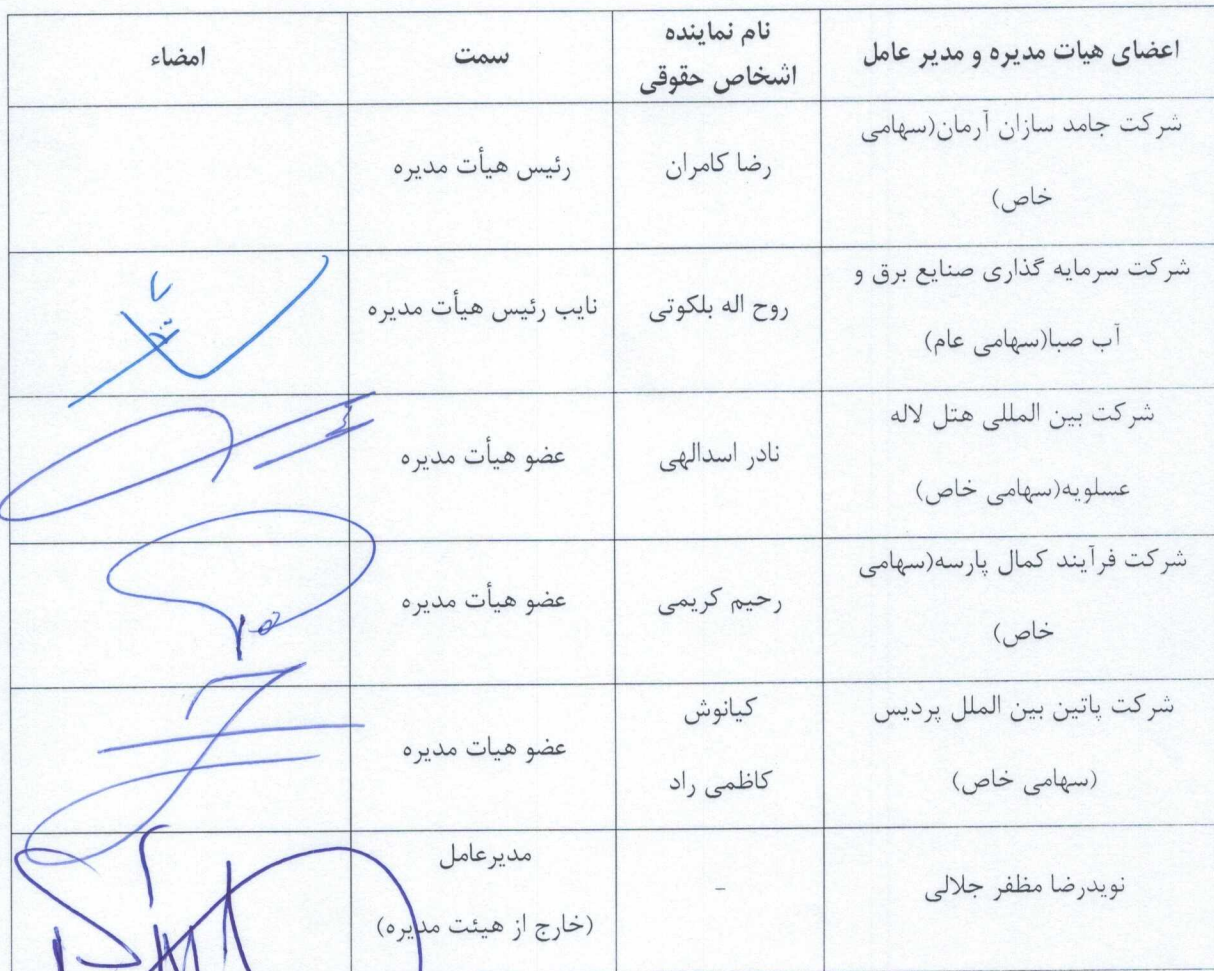 اعضای هیات مدیره و مدیر عامل
نام نماینده
اشخاص حقوقی
سمت
امضاء
شرکت جامد سازان آرمان(سهامی
خاص)
رضا کامران
رئیس هیأت مدیره
شرکت سرمایه گذاری صنایع برق و
آب صبا(سهامی عام)
روح اله بلکوتی
نایب رئیس هیأت مدیره
شرکت بین المللی هتل لاله
عسلویه(سهامی خاص)
نادر اسدالهی
عضو هیأت مدیره
شرکت فرآیند کمال پارسه(سهامی
خاص)
رحیم کریمی
عضو هیأت مدیره
شرکت پاتین بین الملل پردیس
(سهامی خاص)
کیانوش
کاظمی راد
عضو هیات مدیره
نویدرضا مظفر جلالی
-
مدیرعامل
(خارج از هیئت مدیره)